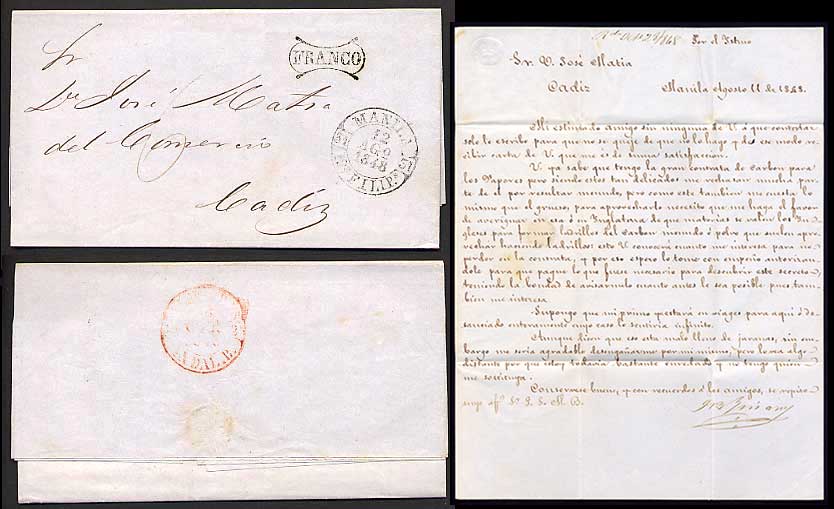 FRANCO
Sr
Dn José Matia
del Comercio
Cadiz
MANILA
12
AGO
1848
FILIPs
ANDAL. B.
Rda Oct 29/848 Por el Istmo
Sr. D. José Matia
Cadiz Manila Agosto 11 de 1848.
Mi estimado amigo sin ninguna de V. á que contestar
solo le escribo para que no se queje de que no lo hago y de ese modo re-
cibir carta de V. que me es de suma satisfaccion.
V. ya sabe que tengo la gran contrata de carbon para
los Vapores pero como estos tan delicados me rechazan mucha par-
te de él por resultar menudo, pero como este tambien me cuesta lo
mismo que el grueso, para aprovecharlo necesito que me haga el favor
de averiguar en esa ó en Inglaterra de que materias se valen los In-
gleses para formar ladrillos del carbon menudo ó polvo que suelen apro-
vechar haciendo ladrillos: esto V. conocerá cuanto me interesa para no
perder en la contrata, y por eso espero lo tome con empeño autorizan-
dole para que pague lo que fuese necesario para descubrir este secreto
teniendo la bondad de avisarmelo cuanto antes le sea posible pues tam-
bien me interesa.
Supongo que mi primo estará en viage para aqui ó de-
sauciado enteramente cuyo caso lo sentiria infinito.
Aunque dicen que eso esta malo lleno de jaranas, sin em-
bargo me seria agradable desengañarme por mi mismo; pero lo veo algo
distante por que estoy todavia bastante enredado y no tengo quien
me sostituya.
Conservese bueno, y con recuerdos á los amigos, se repite
suyo affo. S. S. Q. B. S. M.